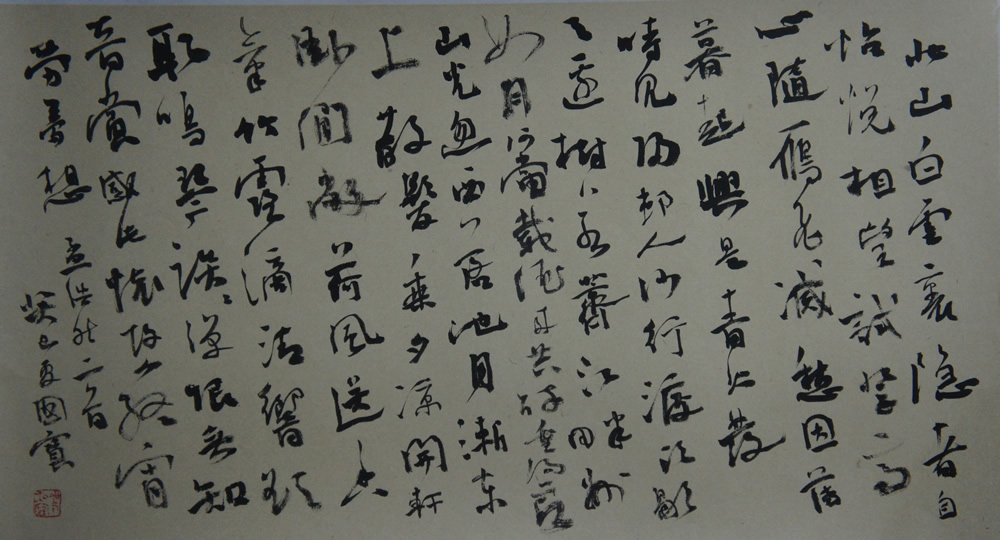 北山白雲裏隱者自
怡悅相望試登高
心隨雁飛滅愁因薄
暮起興是清秋發
時見歸村人沙行渡頭歇
天邊樹若薺江畔洲
如月何當載酒來共醉重陽節
山光忽西落池月漸東
上散髮乘夕涼開軒
臥閒敞荷風送香
氣竹露滴清響欲
取鳴琴彈恨無知
音賞感此懷故人終宵
勞夢想
孟浩然二首
癸巳夏國寶